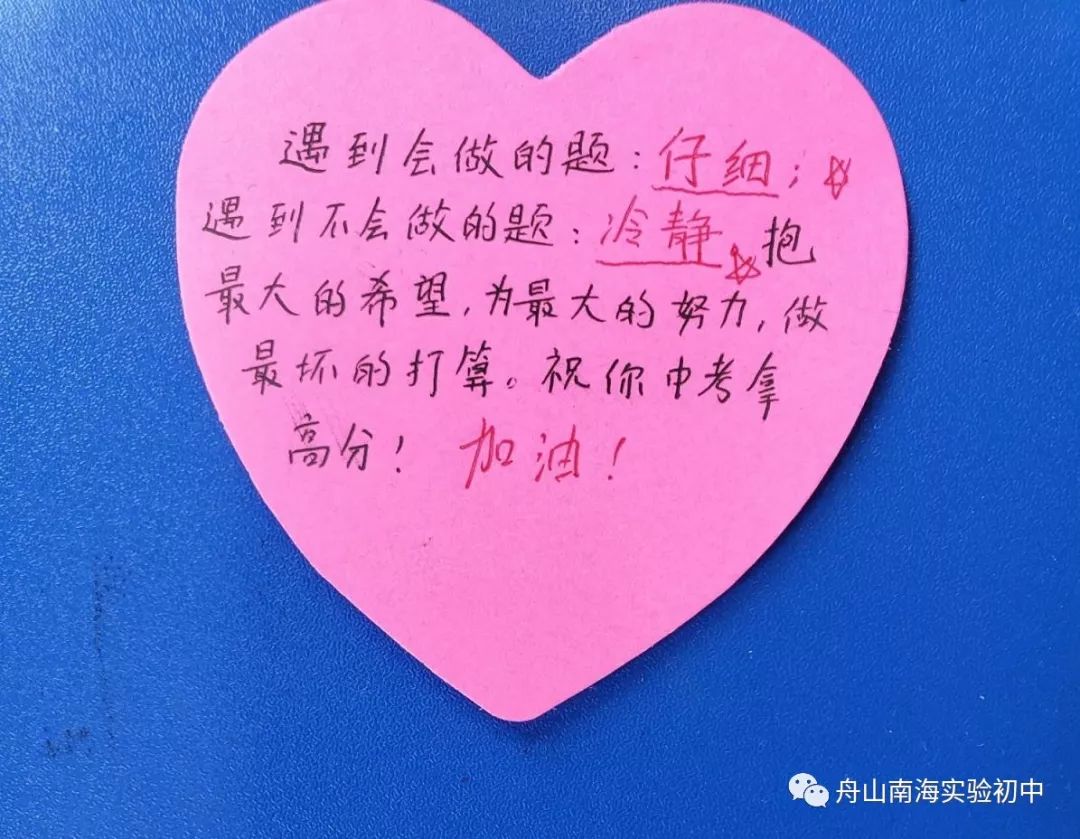 遇到会做的题：仔细；☆
遇到不会做的题：冷静☆抱
最大的希望，为最大的努力，做
最坏的打算。祝你中考拿
高分！加油！
舟山南海实验初中